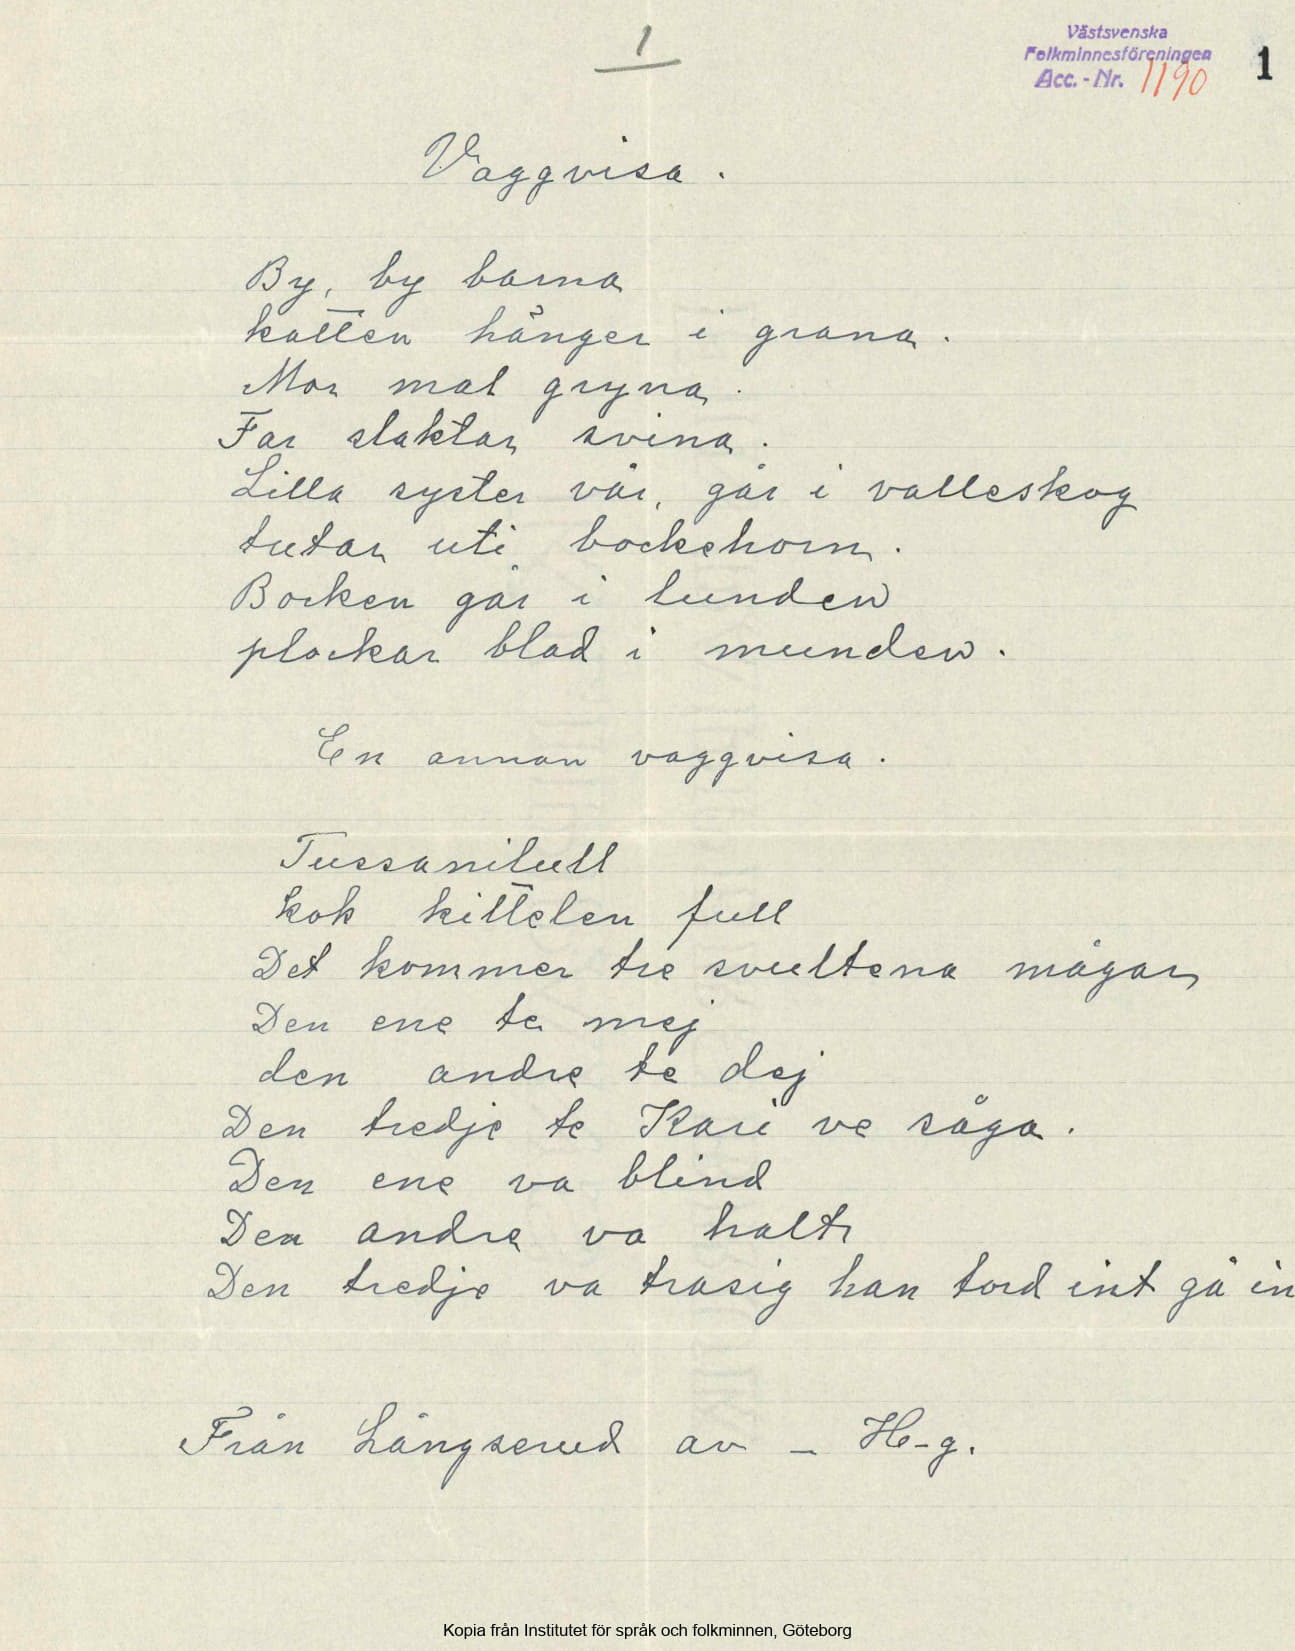 1
Västsvenska
Folkminnesföreningen
Acc.-Nr. 1190
1
Vaggvisa.
By, by barna
katten hänger i grana.
Mor mal gryna.
Far slaktar svina.
Lilla syster vår, går i valleskog
tutar uti bockehorn.
Bocken går i lunden
plockar blad i munden.
En annan vaggvisa.
Tussanilull
kok kittelen full
Det kommer tre svultena mågar
Den ene te mej
den andre te dej
Den tredje te Kari ve såga.
Den ene va blind
Den andre va halt
Den tredje va trasig han tord int gå in
Från Långserud av — H-g.
Kopia från Institutet för språk och folkminnen, Göteborg